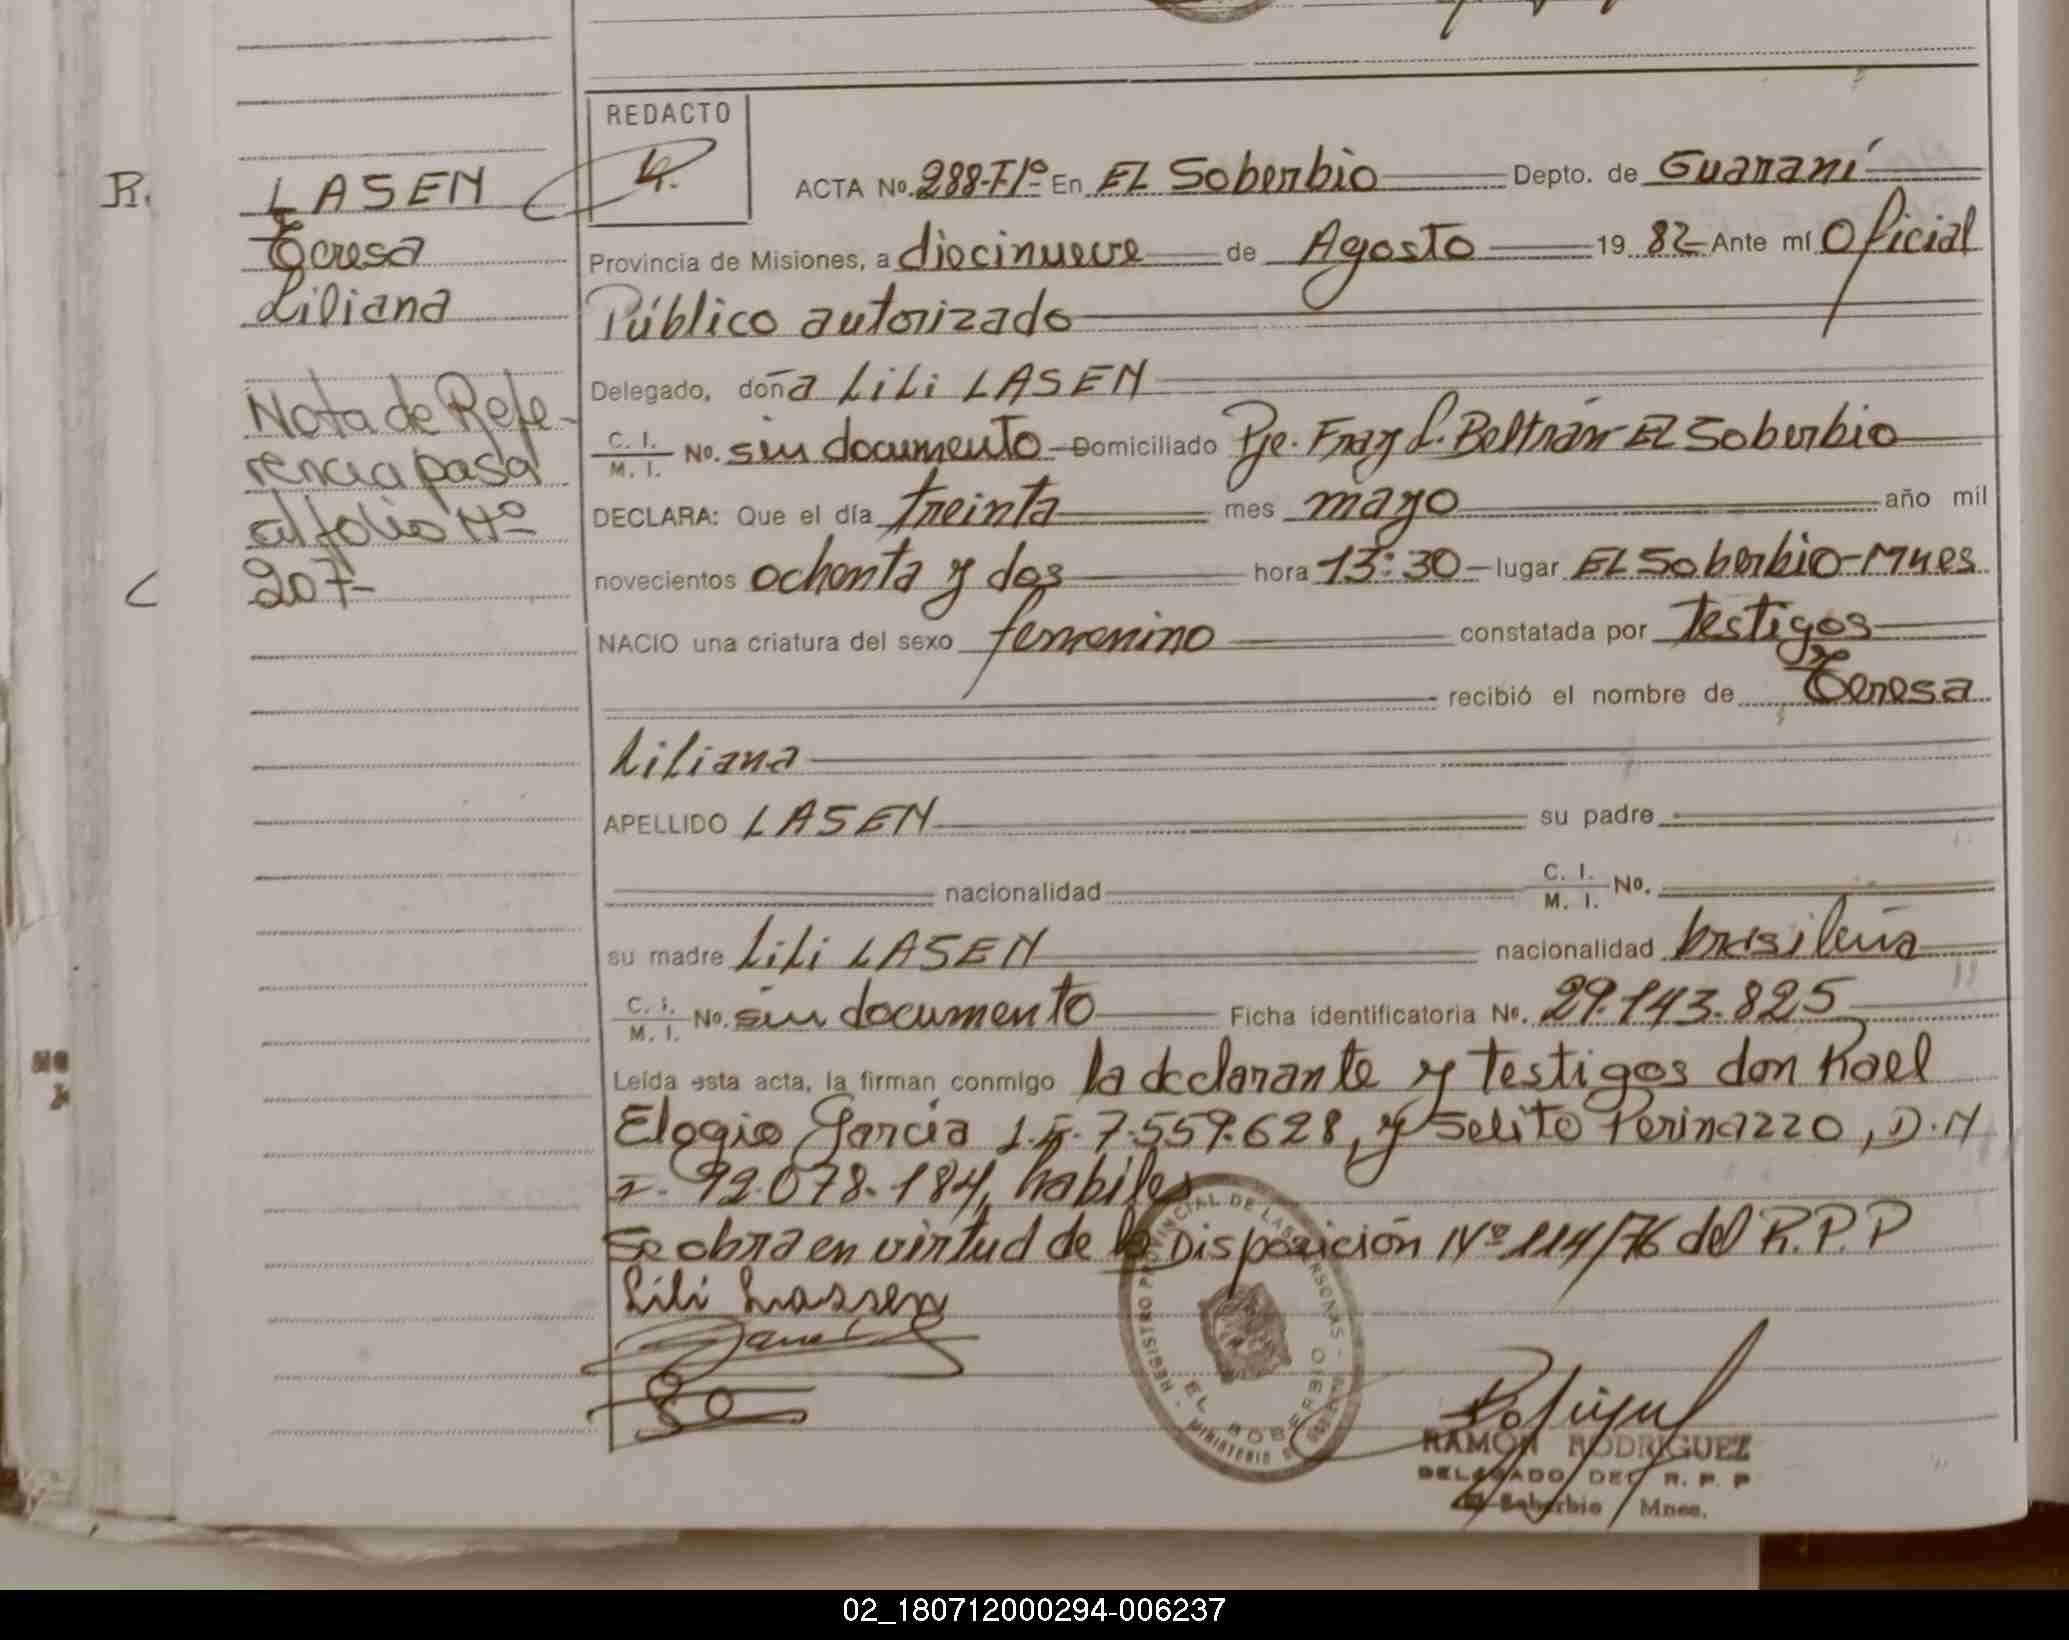 REDACTO
R.
LASEN
Teresa
Liliana
Nota de Refe-
rencia pasa
al folio Nº
207-
ACTA No. 288-Fº En EL Soberbio Depto. de Guaraní
Provincia de Misiones, a diecinueve de Agosto 19 82 Ante mí Oficial
Público autorizado
Delegado, doña Lili LASEN
C. I. M. I. No. sin documento Domiciliado Pje. Fray L. Beltrán El Soberbio
DECLARA: Que el día treinta mes mayo año mil
novecientos ochenta y dos hora 13:30 lugar EL Soberbio-Mnes
NACIO una criatura del sexo femenino constatada por Testigos
recibió el nombre de Teresa
Liliana
APELLIDO LASEN su padre
nacionalidad C. I. M. I. No.
su madre Lili LASEN nacionalidad brasileña
C. I. M. I. No. sin documento Ficha identificatoria No. 29.143.825
Leída esta acta, la firman conmigo la declarante y testigos don Rael
Elogio Garcia L.E. 7.559.628, y Selito Perinazzo, D.N
I. 92.078.184, habiles
Se obra en virtud de la Disposición Nº 114/76 del R.P.P
Lili Lassen
REGISTRO PROVINCIAL DE LAS PERSONAS
EL SOBERBIO
MINISTERIO DE GOBIERNO
RAMON RODRIGUEZ
DELEGADO DEL R. P. P
El Soberbio Mnes.
02_180712000294-006237